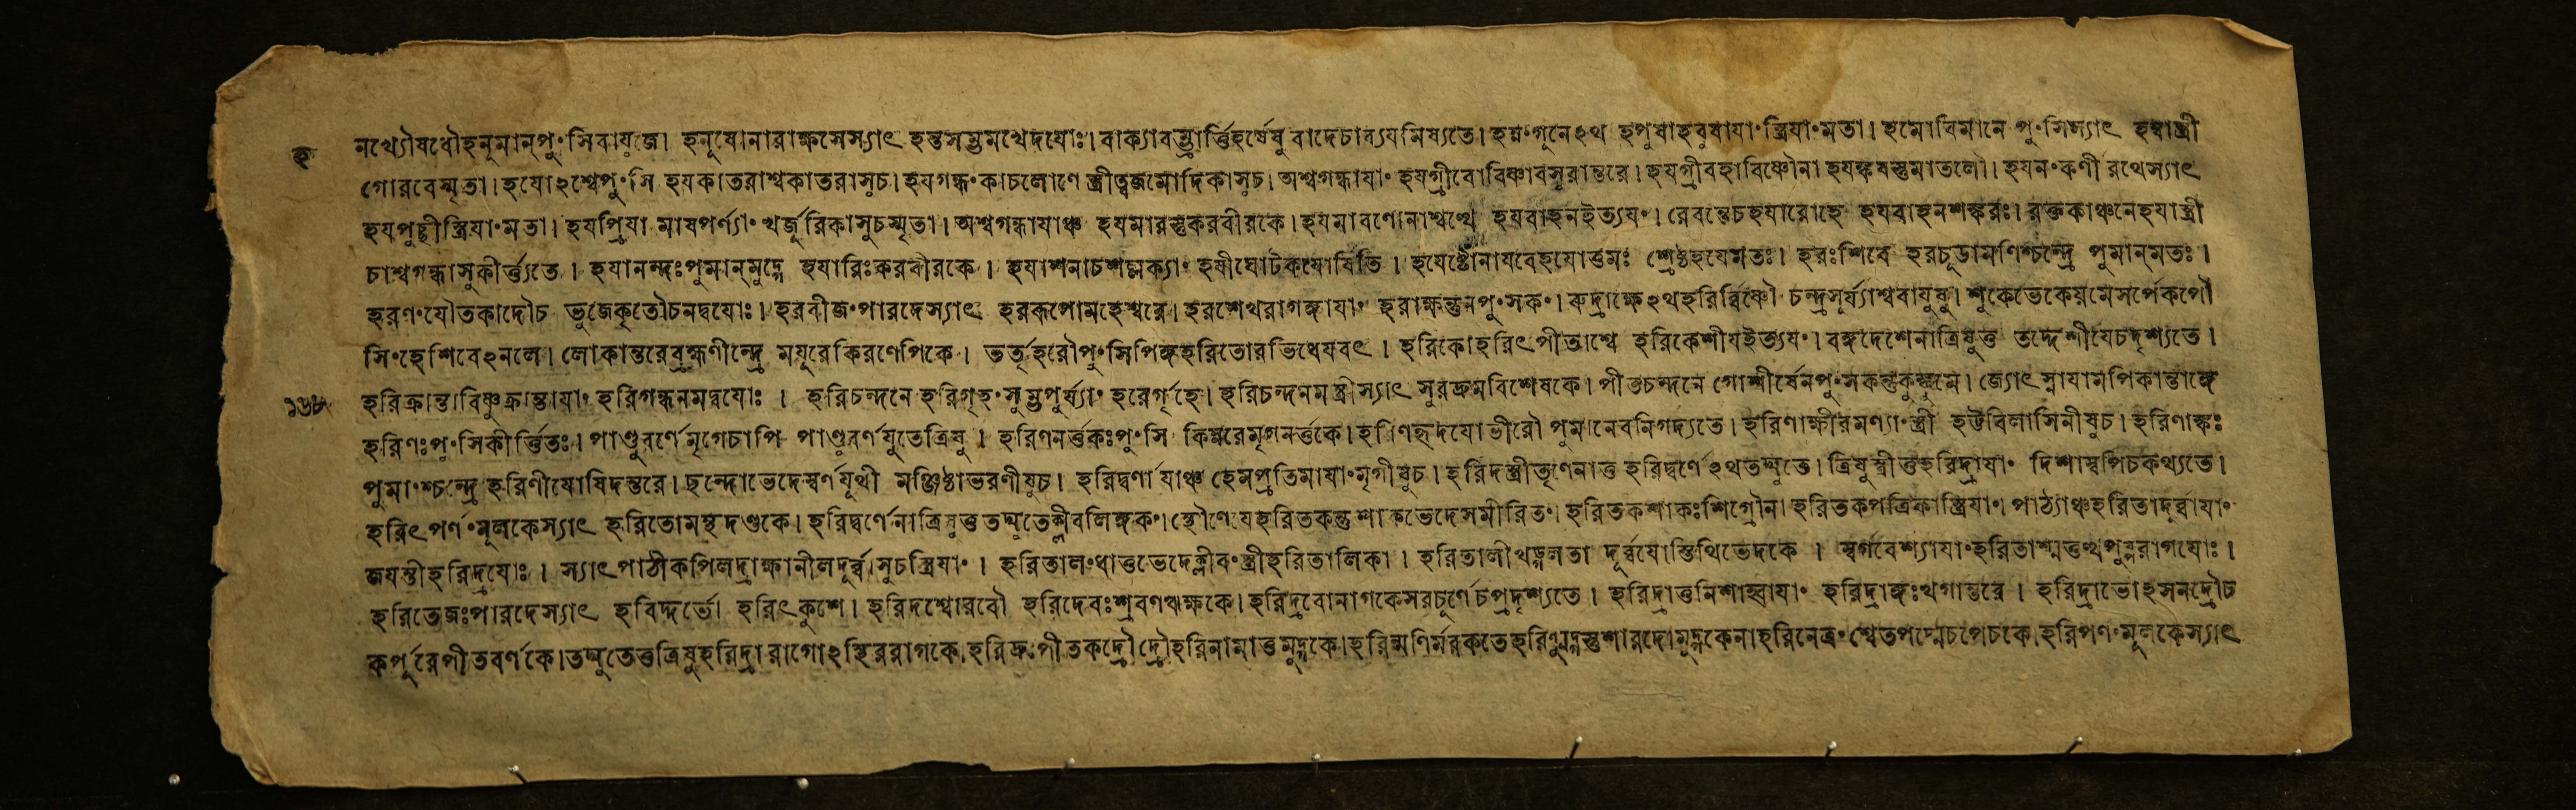 হ নখ্যৌষধৌহনূমান্পুংসিবাযুজে। হনূষোনারাক্ষসেস্যাৎ হন্তসম্ভ্রমখেদযোঃ। বাক্যারম্ভার্ত্তিহর্ষেষু বাদেচাব্যযমিষ্যতে। হপুষাহবুষাযাং স্ত্রিযাং মতা। হমোবিমানে পুংসিস্যাৎ
হযোঽশ্বেপুংসি হযকাতরাশ্বকাতরাসুচ। হযগন্ধং কাচলোণে স্ত্রীত্বজমোদিকাসুচ। অশ্বগন্ধাযাং হযগ্রীবোবিষ্ণাবসুরান্তরে। হযগ্রীবহাবিষ্ণৌনা হযঙ্কষস্তুমাতলৌ। হযনং কর্ণী রথেস্যাৎ
হযপুচ্ছীস্ত্রিযাং মতা। হযপ্রিযা মাষপর্ণ্যাং খর্জূরিকাসুচস্মৃতা। অশ্বগন্ধাযাঞ্চ হযমারস্তুকরবীরকে। হযমারণোনাশ্বত্থে হযবাহনইত্যযং। রেবন্তেচহযারোহে হযবাহনশঙ্করঃ। রক্তকাঞ্চনেহযাস্ত্রী
চাশ্বগন্ধাসুকীর্ত্ত্যতে। হযানন্দঃপুমান্মুদ্গে হযারিঃকরবীরকে। হযাশনাচশল্লক্যাং হযীঘোটকযোষিতি। হযেষ্টোনাযবেহযোত্তমঃ শ্রেষ্ঠহযেমতঃ। হরঃশিবে হরচূডামণিশ্চন্দ্রে পুমান্মতঃ।
হরণং যৌতকাদৌচ ভুজেকৃতৌচনদ্বযোঃ। হরবীজং পারদেস্যাৎ হররূপোমহেশ্বরে। হরশেখরাগঙ্গাযাং হরাক্ষন্তুনপুংসকং। রুদ্রাক্ষেঽথহরির্ব্বিষ্ণৌ চন্দ্রসূর্য্যাশ্ববাযুষু। শুকেভেকেযমেসর্পেকপৌ
সিংহেশিবেঽনলে। লোকান্তরেব্রহ্মণীন্দ্রে মযূরেকিরণেপিকে। ভর্তৃহরৌপুংসিপিঙ্গহরিতোরভিধেযবৎ। হরিকোহরিৎপীতাশ্বে হরিকেশীযইত্যযং। বঙ্গদেশেনাত্রিষুত্ত তদ্দেশীযেচদৃশ্যতে।
১৬৮ হরিক্রান্তাবিষ্ণুক্রান্তাযাং হরিগন্ধনমদ্বযোঃ। হরিচন্দনে হরিগৃহং সুম্ভপুর্য্যাং হরের্গৃহে। হরিচন্দনমস্ত্রীস্যাৎ সুরদ্রুমবিশেষকে। পীতচন্দনে গোশীর্ষেনপুংসকন্তুকুঙ্কুমে। জ্যোৎস্নাযামপিকান্তাঙ্গে
হরিণঃপুংসিকীর্ত্তিতঃ। পাণ্ডুবর্ণেমৃগেচাপি পাণ্ডুবর্ণযুতেত্রিষু। হরিণনর্ত্তকঃপুংসি কিন্নরেমৃগনর্ত্তকে। হরিণহৃদযোভীরৌ পুমানেবনিগদ্যতে। হরিণাক্ষীরমণ্যাংস্ত্রী হট্টবিলাসিনীষুচ। হরিণাঙ্কঃ
পুমাংশ্চন্দ্রে হরিণীযোষিদন্তরে। ছন্দোভেদেস্বর্ণযূথী মঞ্জিষ্ঠাভরণীষুচ। হরিদ্বর্ণাযাঞ্চ হেমপ্রতিমাযাং মৃগীষুচ। হরিদস্ত্রীতৃণেনাত্ত হরিদ্বর্ণেঽথতদ্যুতে। ত্রিষুস্ত্রীত্তহরিদ্রাযাং দিশাস্বপিচকথ্যতে।
হরিৎপর্ণং মূলকেস্যাৎ হরিতোমন্থদণ্ডকে। হরিদ্বর্ণেনাত্রিষুত্ত তদ্যুতেক্লীবলিঙ্গকং। স্থৌণেযেহরিতকন্তুশাকভেদেসমীরিতং। হরিতকশাকঃশিগ্রৌনা হরিতকপত্রিকাস্ত্রিযাং। পাঠ্যাঞ্চহরিতাদূর্ব্বাযাং
জযন্তীহরিদ্রযোঃ। স্যাৎপাঠীকপিলদ্রাক্ষানীলদূর্ব্বাসুচস্ত্রিযাং। হরিতালংধাত্তভেদেক্লীবং স্ত্রীহরিতালিকা। হরিতালীখড্গলতা দূর্ব্বযোস্তিথিভেদকে। স্বর্গবেশ্যাযাং হরিতাশ্মত্তত্থপুষ্পরাগযোঃ।
হরিতেজঃপারদেস্যাৎ হবিদ্দর্ভো হরিৎকুশে। হরিদশ্বোরবৌ হরিদেবঃশ্রবণঋক্ষকে। হরিদ্রবোনাগকেসরচূর্ণেচপ্রদৃশ্যতে। হরিদ্রাত্তনিশাহ্বাযাং হরিদ্রাঙ্গঃখগান্তরে। হরিদ্রাভোঽসনদ্রৌচ
কর্পূরেপীতবর্ণকে। তদ্যুতেত্তত্রিষুহরিদ্রারাগোঽস্থিররাগকে। হরিদ্রুঃপীতকদ্রৌ দ্রৌহরিনামাত্তমুদ্গকে। হরিন্মণির্মরকতে হরিন্মুদ্গস্তুশারদে। মুদ্গকেনাহরিনেত্রং শ্বেতপদ্মেচপেচকে। হরিপর্ণং মূলকেস্যাৎ